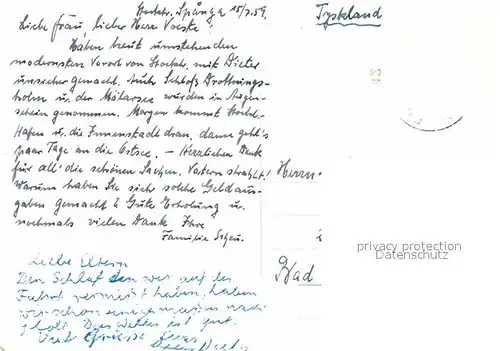 Stockh. Spånga 15/7.59.
Liebe Frau, lieber Herr Voeske!
Haben heut umstehenden
modernsten Vorort von Stockh. mit Dieter
unsicher gemacht. Auch Schloß Drottnings-
holm u. der Mälarsee wurden in Augen-
schein genommen. Morgen kommt Stockh.-
Hafen u. die Innenstadt dran, dann geht's
paar Tage an die Ostsee. – Herzlichen Dank
für all' die schönen Sachen. Vatern strahlt!
Warum haben Sie sich solche Geldaus-
gaben gemacht? Gute Erholung u.
nochmals vielen Dank Ihre
Familie
Liebe Eltern
Den Schlaf den wir auf der
Fahrt vermißt haben, haben
wir schon einigermaßen nach
geholt. Das Wetter ist gut.
Viele Grüsse Euer
Tyskland
Herrn
Bad
privacy protection
Datenschutz